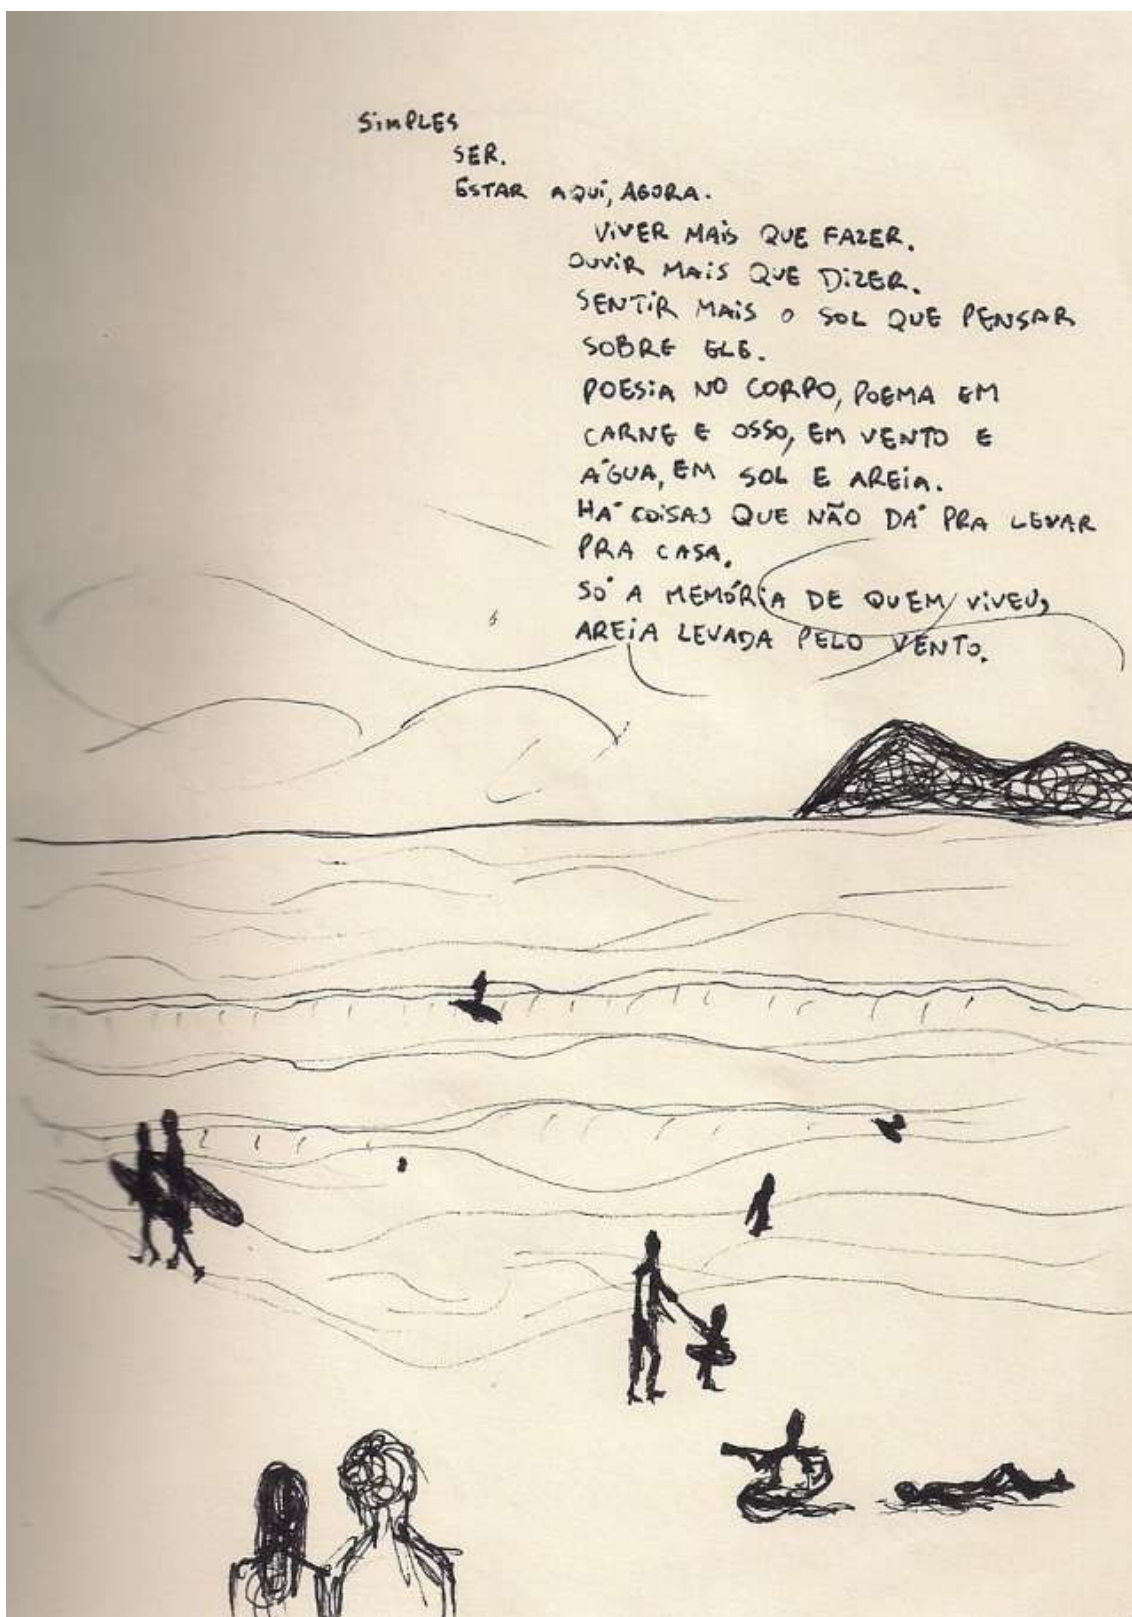 SIMPLES
SER.
ESTAR AQUI, AGORA.
VIVER MAIS QUE FAZER.
OUVIR MAIS QUE DIZER.
SENTIR MAIS O SOL QUE PENSAR
SOBRE ELE.
POESIA NO CORPO, POEMA EM
CARNE E OSSO, EM VENTO E
ÁGUA, EM SOL E AREIA.
HÁ COISAS QUE NÃO DÁ PRA LEVAR
PRA CASA.
SÓ A MEMÓRIA DE QUEM VIVEU,
AREIA LEVADA PELO VENTO.